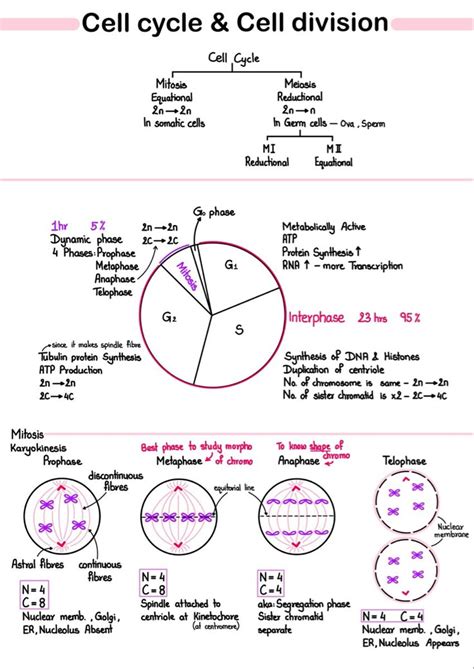 Cell cycle & Cell division
Cell Cycle
Mitosis
Equational
2n → 2n
In somatic cells
Meiosis
Reductional
2n → n
In Germ cells — Ova, Sperm
M I
Reductional
M II
Equational
G₀ phase
1hr 5%
Dynamic phase
4 Phases: Prophase
Metaphase
Anaphase
Telophase
2n → 2n
2C → 2C
Mitosis
G₁
G₂
S
Metabolically Active
ATP
Protein Synthesis ↑
RNA ↑ - more Transcription
Interphase 23 hrs 95%
since it makes spindle fibre
Tubulin protein Synthesis
ATP Production
2n → 2n
2C → 4C
Synthesis of DNA & Histones
Duplication of centriole
No. of chromosome is same - 2n → 2n
No. of sister chromatid is x2 - 2C → 4C
Mitosis
Karyokinesis
Prophase
discontinuous
fibres
Astral fibres
continuous
fibres
N = 4
C = 8
Nuclear memb., Golgi,
ER, Nucleolus Absent
Best phase to study morpho
of chromo
Metaphase
equitorial line
N = 4
C = 8
Spindle attached to
centriole at Kinetochore
(at centromere)
To know shape of
chromo
Anaphase
N = 4
C = 8
aka: Segregation phase
Sister chromatid
separate
Telophase
Nuclear
membrane
N = 4 C = 4
Nuclear memb., Golgi,
ER, Nucleolus Appears